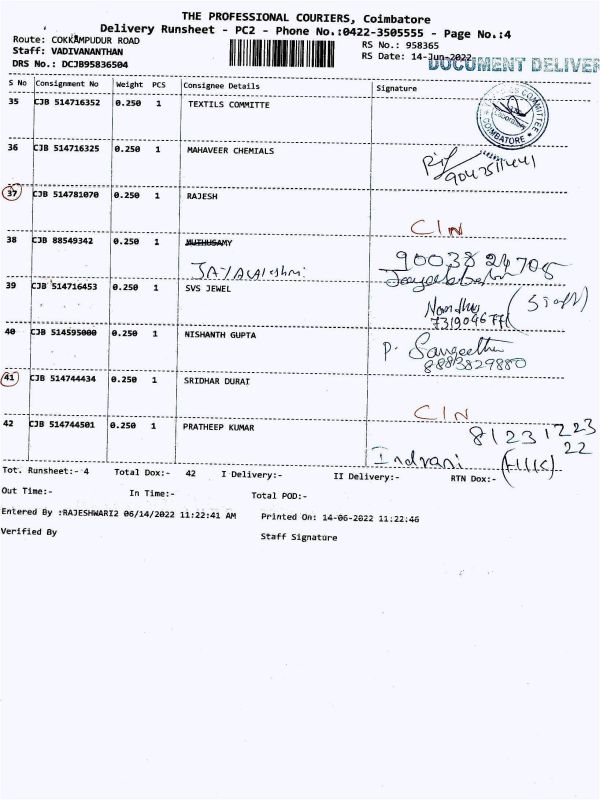 THE PROFESSIONAL COURIERS, Coimbatore
Delivery Runsheet - PC2 - Phone No.:0422-3505555 - Page No.:4
Route: COKKAMPUDUR ROAD
RS No.: 958365
Staff: VADIVANANTHAN
RS Date: 14-Jun-2022
DOCUMENT DELIVER
DRS No.: DCJB95836504
S No Consignment No Weight PCS Consignee Details Signature
35 CJB 514716352 0.250 1 TEXTILS COMMITTE
COMMITTEE
COIMBATORE
36 CJB 514716325 0.250 1 MAHAVEER CHEMIALS
37 CJB 514781070 0.250 1 RAJESH
CIN
38 CJB 88549342 0.250 1 MUTHUSAMY
90038 24705
39 CJB 514716453 0.250 1 SVS JEWEL
40 CJB 514595000 0.250 1 NISHANTH GUPTA
P. Sangeetha
8883829880
41 CJB 514744434 0.250 1 SRIDHAR DURAI
CIN
42 CJB 514744501 0.250 1 PRATHEEP KUMAR
81231223
22
Indrani
Tot. Runsheet:- 4 Total Dox:- 42 I Delivery:- II Delivery:- RTN Dox:-
Out Time:- In Time:- Total POD:-
Entered By :RAJESHWARI2 06/14/2022 11:22:41 AM Printed On: 14-06-2022 11:22:46
Verified By Staff Signature